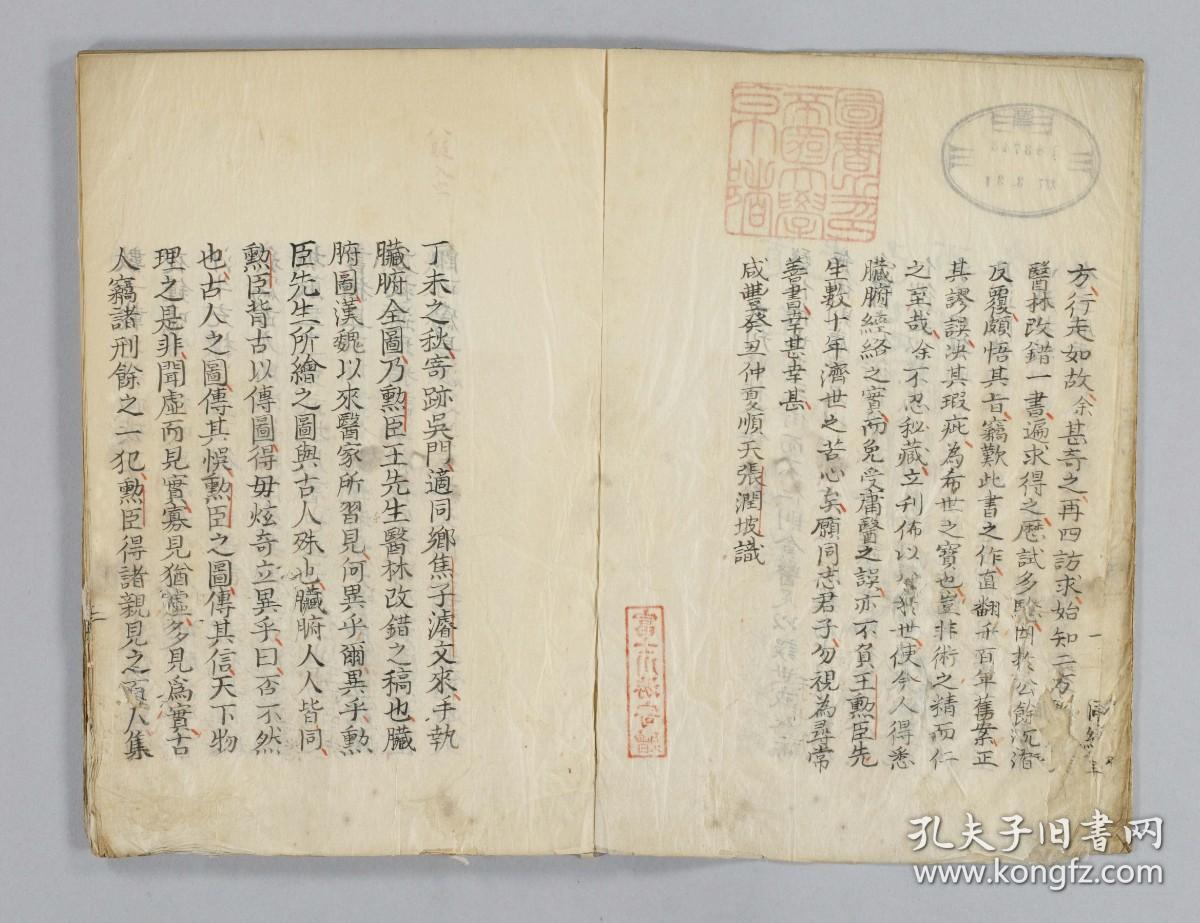 方行走如故余甚奇之再四訪求始知二方
醫林改錯一書遍求得之歷試多驗因於公餘沉潛
反覆頗悟其旨竊歎此書之作直翻千百年舊案正
其謬誤決其瑕疵為希世之寶也豈非術之精而仁
之至哉余不忍秘藏立刊佈以公於世使今人得悉
臟腑經絡之實而免受庸醫之誤亦不負王勲臣先
生數十年濟世之苦心矣願同志君子勿視為尋常
善書幸甚幸甚
咸豐癸丑仲夏順天張潤坡識
丁未之秋寄跡吳門適同鄉焦子濬文來手執
臟腑全圖乃勲臣王先生醫林改錯之稿也臟
腑圖漢魏以來醫家所習見何異乎爾異乎勲
臣先生所繪之圖與古人殊也臟腑人人皆同
勲臣背古以傳圖得毋炫奇立異乎曰否不然
也古人之圖傳其悞勲臣之圖傳其信天下物
理之是非聞虛而見實寡見猶虛多見為實古
人竊諸刑餘之一犯勲臣得諸親見之百人集
孔夫子旧书网
www.kongfz.com